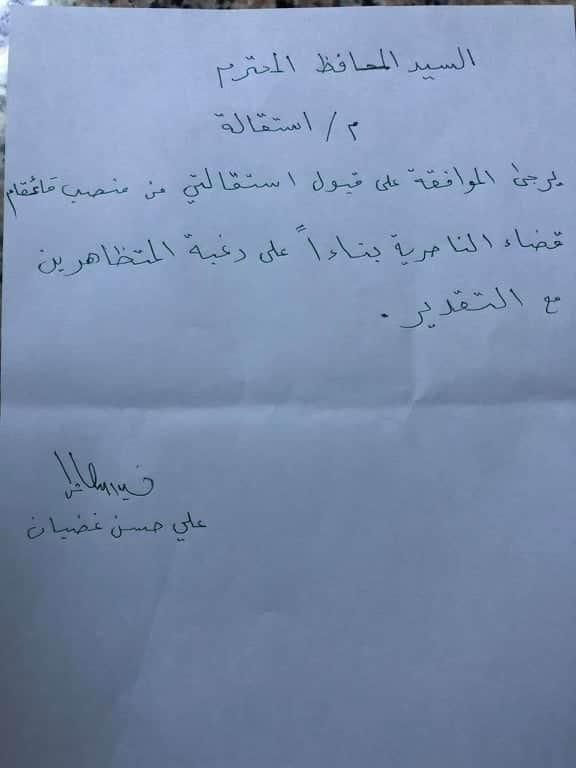 السيد المحافظ المحترم
م/ استقالة
يرجى الموافقة على قبول استقالتي من منصب قائمقام
قضاء الناصرية بناءاً على رغبة المتظاهرين
مع التقدير.
علي حسن غضبان